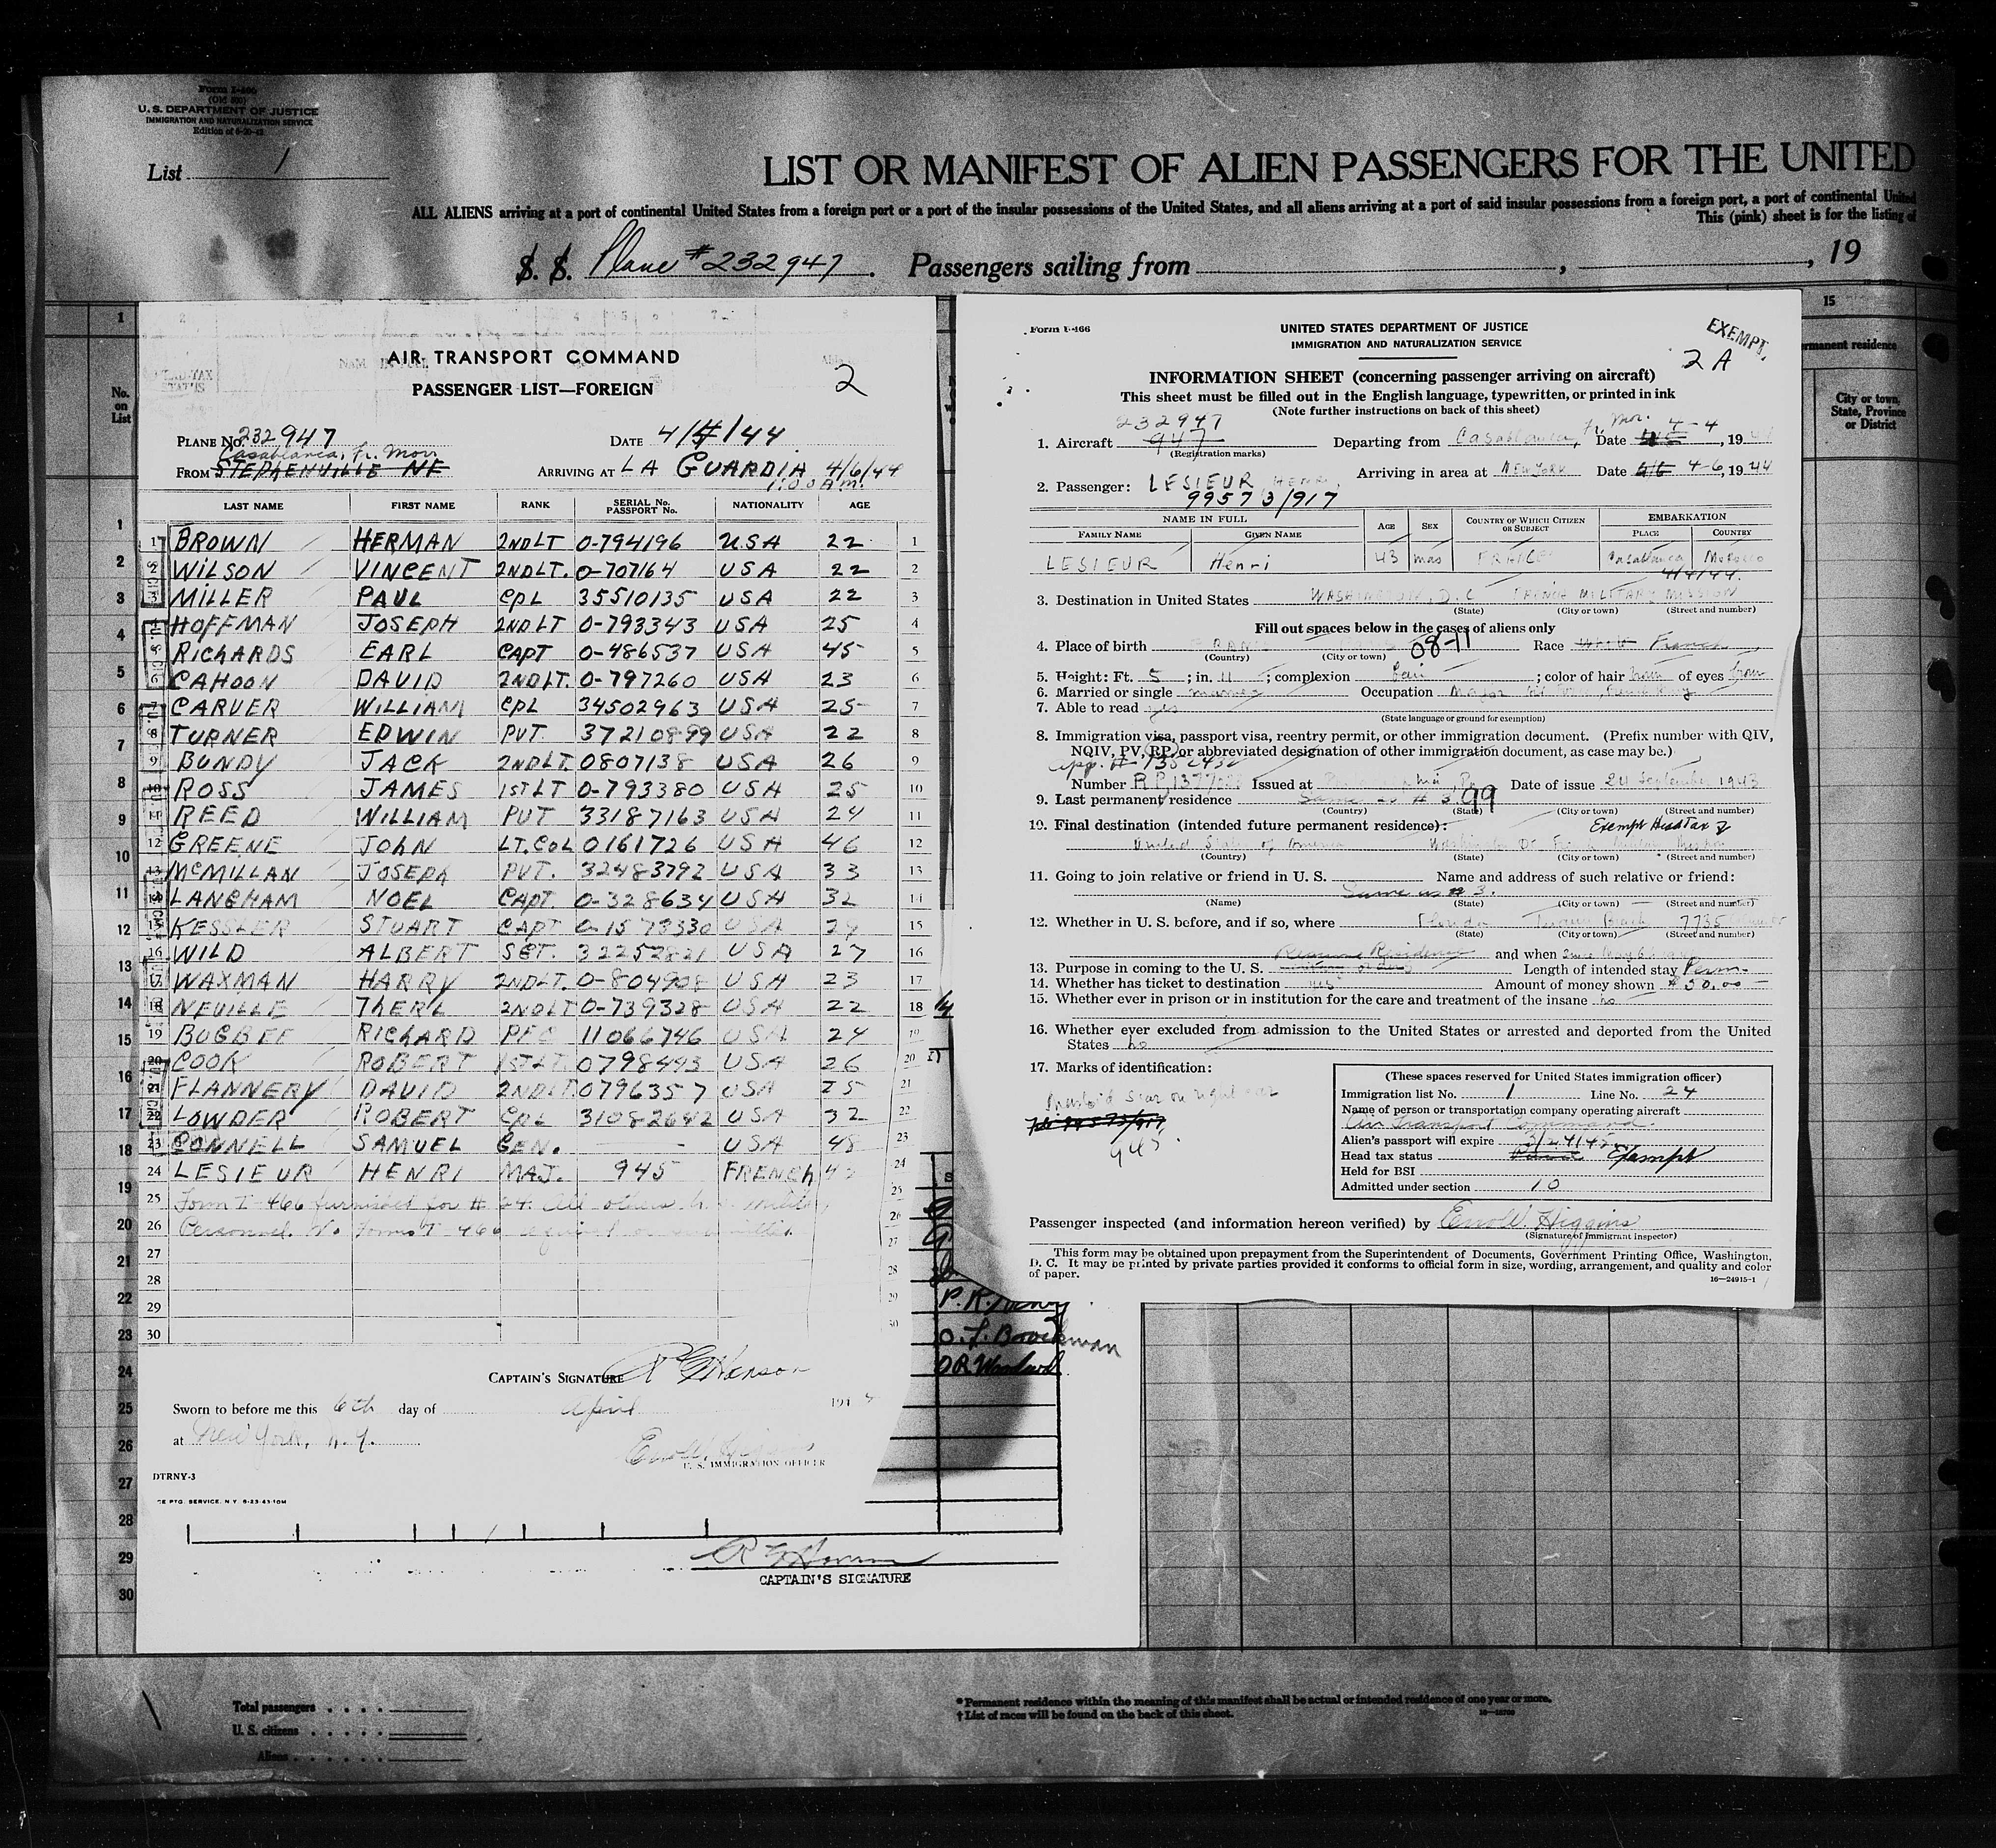 Form I-466
(Old 500)
U. S. DEPARTMENT OF JUSTICE
IMMIGRATION AND NATURALIZATION SERVICE
List 1
LIST OR MANIFEST OF ALIEN PASSENGERS FOR THE UNITED
ALL ALIENS arriving at a port of continental United States from a foreign port or a port of the insular possessions of the United States, and all aliens arriving at a port of said insular possessions from a foreign port, a port of continental United
This (pink) sheet is for the listing of
S. S. Plane #232947. Passengers sailing from , , 19
AIR TRANSPORT COMMAND
PASSENGER LIST—FOREIGN
2
PLANE No. 232947 DATE 4/4/44
Casablanca, Fr. Morr
FROM STEPHENVILLE NF ARRIVING AT LA GUARDIA 4/6/44
1:00 A.M.
LAST NAME FIRST NAME RANK SERIAL No. PASSPORT No. NATIONALITY AGE
1 BROWN HERMAN 2NDLT 0-794196 USA 22 1
2 WILSON VINCENT 2NDLT. 0-707164 USA 22 2
3 MILLER PAUL CPL 35510135 USA 22 3
4 HOFFMAN JOSEPH 2NDLT 0-793343 USA 25 4
5 RICHARDS EARL CAPT 0-486537 USA 45 5
6 CAHOON DAVID 2NDLT. 0-797260 USA 23 6
7 CARVER WILLIAM CPL 34502963 USA 25 7
8 TURNER EDWIN PVT. 37210899 USA 22 8
9 BUNDY JACK 2NDLT. 0807138 USA 26 9
10 ROSS JAMES 1STLT 0-793380 USA 25 10
11 REED WILLIAM PVT 33187163 USA 24 11
12 GREENE JOHN LT. COL 0161726 USA 46 12
13 McMILLAN JOSEPH PVT. 32483792 USA 33 13
14 LANGHAM NOEL CAPT. 0-328634 USA 32 14
15 KESSLER STUART CAPT 0-1573330 USA 29 15
16 WILD ALBERT SGT. 32252821 USA 27 16
17 WAXMAN HARRY 2NDLT. 0-804908 USA 23 17
18 NEVILLE THERL 2NDLT 0-739328 USA 22 18
19 BUGBEE RICHARD PFC 11066746 USA 24 19
20 COOK ROBERT 1STLT. 0798493 USA 26 20
21 FLANNERY DAVID 2NDLT. 0796357 USA 25 21
22 LOWDER ROBERT CPL 31082642 USA 32 22
23 CONNELL SAMUEL GEN. USA 48 23
24 LESIEUR HENRI MAJ. 945 FRENCH 24
25 Form I-466 furnished for # 24. All others 25
26 Personnel. No forms I-466 26
27 27
28 28
29 29
30 30
CAPTAIN'S SIGNATURE
Sworn to before me this 6th day of April 194
at New York, N.Y.
U. S. IMMIGRATION OFFICER
DTRNY-3
CAPTAIN'S SIGNATURE
O. F. Brockman
Form I-466
UNITED STATES DEPARTMENT OF JUSTICE
IMMIGRATION AND NATURALIZATION SERVICE
EXEMPT.
2 A
INFORMATION SHEET (concerning passenger arriving on aircraft)
This sheet must be filled out in the English language, typewritten, or printed in ink
(Note further instructions on back of this sheet)
232947
1. Aircraft 947 Departing from Casablanca, Fr. Mor. Date 4-4, 19
(Registration marks)
Arriving in area at NEW YORK Date 4-6, 1944
2. Passenger: LESIEUR HENRI
99573/917
NAME IN FULL AGE SEX COUNTRY OF WHICH CITIZEN OR SUBJECT EMBARKATION
FAMILY NAME GIVEN NAME PLACE COUNTRY
LESIEUR Henri 43 mas FRANCE Casablanca Morocco
4/4/44.
3. Destination in United States WASHINGTON, D.C FRENCH MILITARY MISSION
(State) (City or town) (Street and number)
Fill out spaces below in the cases of aliens only
4. Place of birth 08-11 Race White French
(Country) (City or town)
5. Height: Ft. 5; in. 11; complexion fair; color of hair brown of eyes brown
6. Married or single married Occupation Major
7. Able to read yes
(State language or ground for exemption)
8. Immigration visa, passport visa, reentry permit, or other immigration document. (Prefix number with QIV,
NQIV, PV, RP, or abbreviated designation of other immigration document, as case may be.)
Number RP Issued at Date of issue 24 September 1943
9. Last permanent residence Same as # 3. 99
(Country) (State) (City or town) (Street and number)
10. Final destination (intended future permanent residence): Exempt Head Tax
United States of America Washington DC
(Country) (State) (City or town) (Street and number)
11. Going to join relative or friend in U. S. Name and address of such relative or friend:
Same as # 3.
(Name) (State) (City or town) (Street and number)
12. Whether in U. S. before, and if so, where Florida 7735
(State) (City or town) (Street and number)
Resume Residence and when
13. Purpose in coming to the U. S. Length of intended stay Perm-
14. Whether has ticket to destination yes Amount of money shown $50.00
15. Whether ever in prison or in institution for the care and treatment of the insane no
16. Whether ever excluded from admission to the United States or arrested and deported from the United
States no
17. Marks of identification:
Mastoid scar on right ear
945.
(These spaces reserved for United States immigration officer)
Immigration list No. 1 Line No. 24
Name of person or transportation company operating aircraft
Air Transport Command.
Alien's passport will expire
Head tax status Exempt
Held for BSI
Admitted under section 10
Passenger inspected (and information hereon verified) by Higgins
(Signature of immigrant inspector)
This form may be obtained upon prepayment from the Superintendent of Documents, Government Printing Office, Washington,
D. C. It may be printed by private parties provided it conforms to official form in size, wording, arrangement, and quality and color
of paper.
16—24915-1
15
permanent residence
City or town, State, Province or District
No. on List
Total passengers
U. S. citizens
Aliens
*Permanent residence within the meaning of this manifest shall be actual or intended residence of one year or more.
†List of races will be found on the back of this sheet.